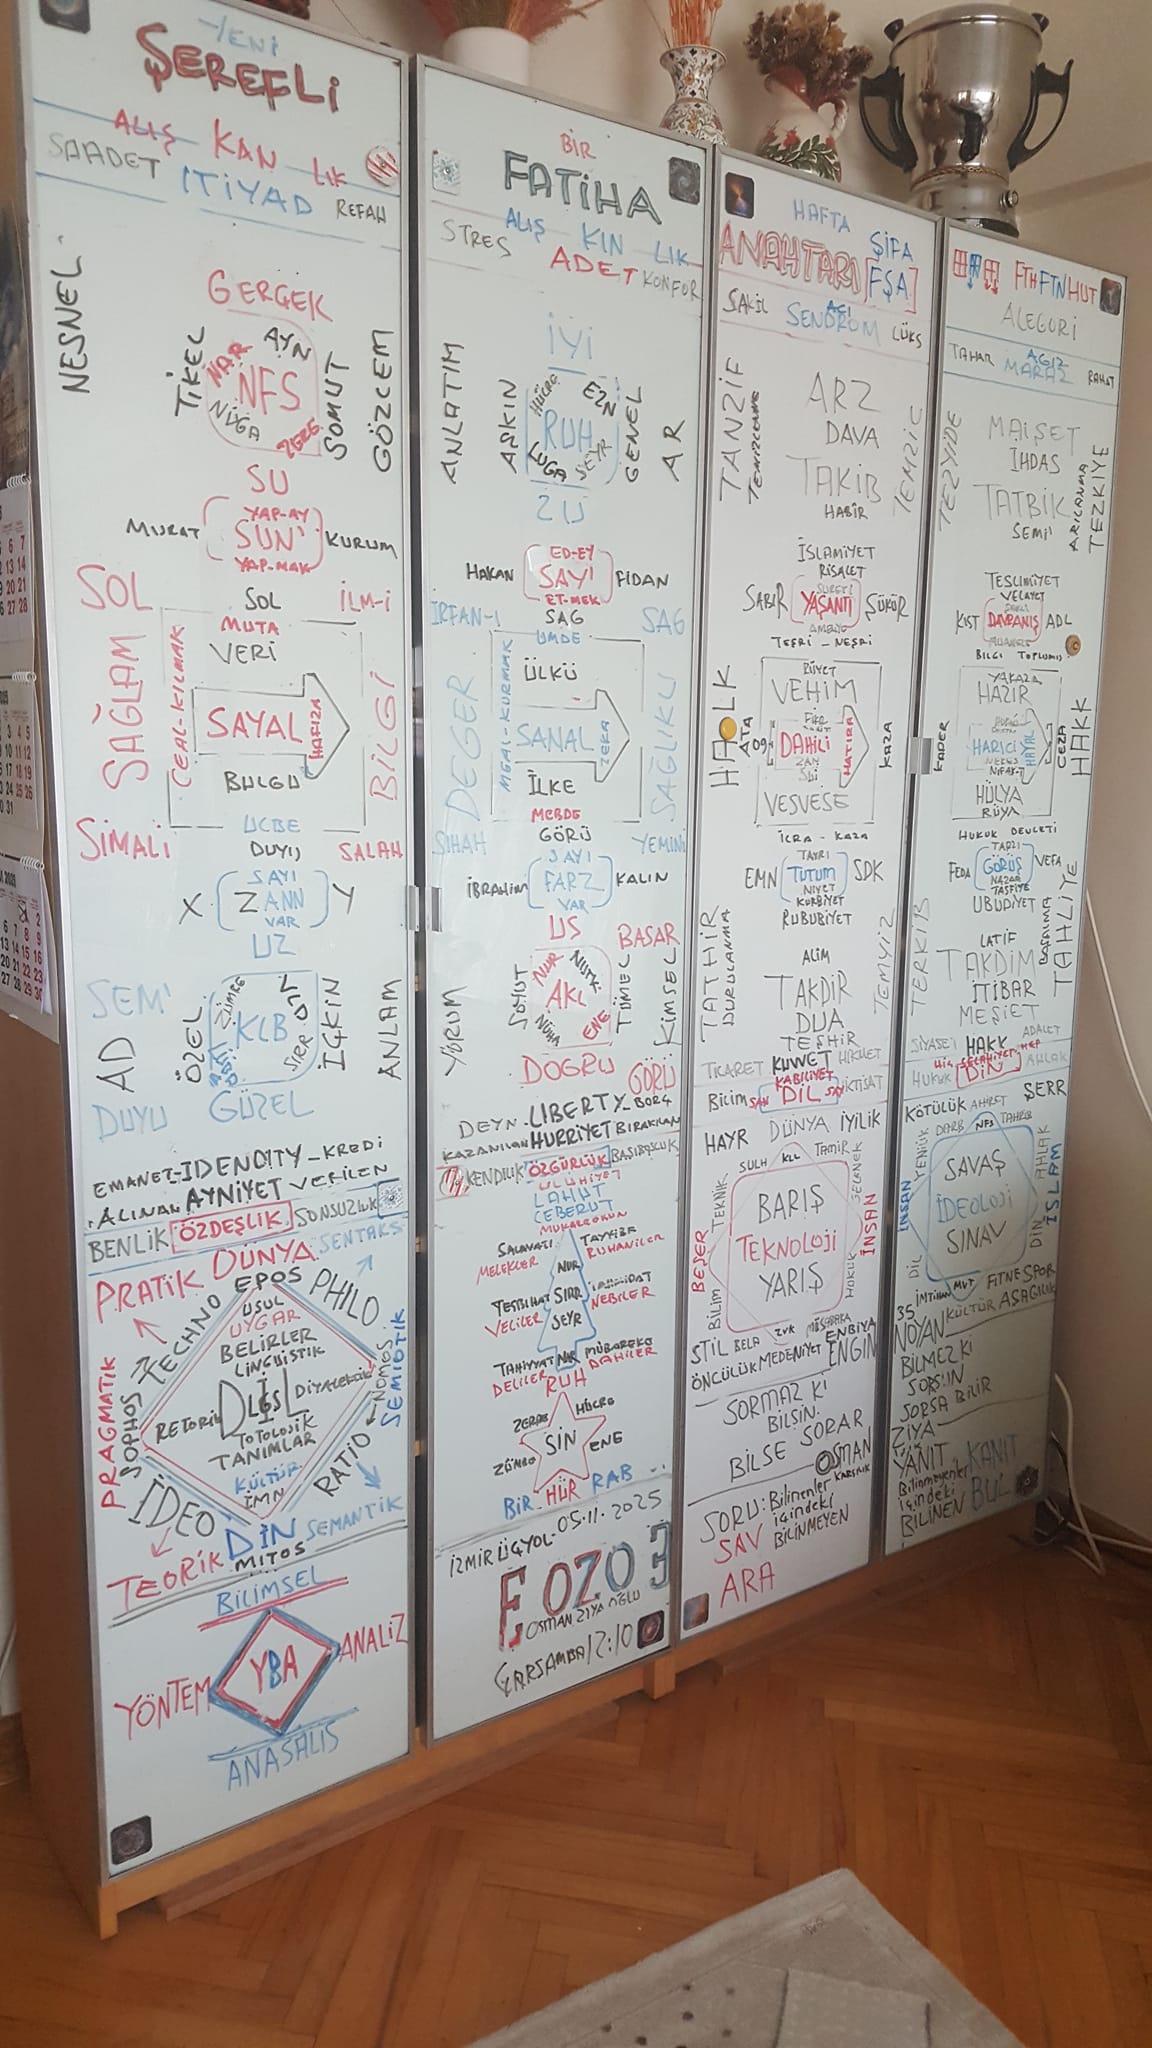 YENİ
ŞEREFLİ
ALIŞ KAN LIK
SAADET İTİYAD REFAH
NESNEL
GERGEK
TİKEL
AYN
NAR NFS
NÜGA
ZERE
SOMUT
GÖZLEM
SU
YAP-AY
MURAT SUN' KURUM
YAP-MAK
SOL SOL İLM-İ
MUTA
VERİ
SAĞLAM
CEAL-KILMAK
SAYAL
HAFIZA
BİLGİ
BULGU
UCBE
SİMALİ DUYIŞ SALAH
SAYI
X ZANN Y
VAR
UZ
SEM'
AD
ÖZEL
ZÜMRE
KLB
SIRR
İÇKİN
ANLAM
DUYU GÜZEL
EMANET-IDENDITY-KREDİ
ALINAN AYNİYET VERİLEN
BENLİK ÖZDEŞLİK SONSUZLUK
PRATİK DÜNYA SENTAKS
EPOS
TECHNO PHILO
USUL
UYGAR
BELİRLER
LİNGUİSTİK
PRAGMATİK
SOPHOS
RETORİK DİYALEKTİK
NOMOS
SEMİOTİK
TOTOLOJİK
TANIMLAR
KÜLTÜR
İMN
RATİO
İDEO DİN SEMANTİK
TEORİK MİTOS
BİLİMSEL
YBA ANALİZ
YÖNTEM
ANASALIS
BİR
FATİHA
ALIŞ KIN LIK
STRES ADET KONFOR
İYİ
ANLATIM
AŞKIN
HÜCRE EZN
RUH
LUGA SEYR
GENEL
AR
ZU
ED-EY
HAKAN SAYI' FİDAN
ET-MEK
İRFAN-I SAG SAG
UMDE
ÜLKÜ
DEGER
SANAL
ZEKA
SAĞLIKLI
İLKE
MEBDE
SIHAH GÖRÜ YEMİNİ
SAYI
İBRAHİM FARZ KALIN
VAR
US BASAR
YORUM
SOYUT
NUR NUTK
AKL
NUHA ENE
TÜMEL
KİMSEL
DOGRU GÖRÜ
DEYN-LIBERTY-BORÇ
KAZANILAN HÜRRİYET BIRAKILAN
KENDİLİK ÖZGÜRLÜK BAŞIBAŞCLIK
ULUHİYET
LAHUT
CEBERUT
SALAVATI TAYYİBE
MELEKLER NUR RUHANİLER
TEŞBİHAT SIRR
VELİLER SEYR NEBİLER
TAHİYYAT NAR MÜBAREKE
DELİLER DAHİLER
RUH
ZERRE HÜCRE
SİN
ZÜMRE ENE
BİR HÜR RAB
İZMİR ÜÇYOL 05.11.2025
E OZO 3
OSMAN ZİYA OĞLU
ÇARŞAMBA 12:10
HAFTA
ŞİFA
ANAHTARI [FŞA]
AÇI
ŞAKİL SENDROM LÜKS
TANZİF
TEMİZLENME
ARZ
DAVA
TAKİB
HABİR
TEMZİC
İSLAMİYET
RİSALET
SABIR YAŞANTI ŞÜKÜR
TEŞRİ-NEŞRİ
RÜYET
VEHİM
HALK
ATA
FİKR
DAHİLİ
ZAN
HATIRA
KAZA
VESVESE
İCRA-KAZA
TAVRI
EMN TUTUM SDK
NİYET
KURBİYET
RUBUBİYET
TATHİR
DURULANMA
ALİM
TAKDİR
DUA
TEŞHİR
TEMYİZ
TİCARET KUVVET HİKMET
KABİLİYET
BİLİM DİL İKTİSAT
HAYR DÜNYA İYİLİK
SULH KLL TAMİR
TEKNİK
BEŞER
BİLİM
BARIŞ
TEKNOLOJİ
YARIŞ
İNSAN
STİL BELA ZVK MÜSABAKA
ENBİYA
ÖNCÜLÜK MEDENİYET ENGİN
SORMAZ Kİ
BİLSİN.
BİLSE SORAR
OSMAN
KARSNIK
SORU: Bilinenler
içindeki
SAV BİLİNMEYEN
ARA
FTH FTN HUT
ALEGORİ
AGIZ
TAHAR MARAZ RAHAT
TEZYİDE
MAİŞET
İHDAS
TATBİK
SEMİ'
ARILANMA
TEZKİYE
TESLİMİYET
VELAYET
KIST DAVRANIŞ ADL
BİLGİ TOPLUMU
YAKAZA
HAZIR
KADER
HARİCİ
HAYAL
CEZA
HAKK
HÜLYA
RÜYA
HUKUK DEVLETİ
TARZI
FEDA GÖRÜŞ VEFA
NAZAR
TASFİYE
UBUDİYET
TERKİB
LATİF
TAKDİM
İTİBAR
MEŞİET
BOŞALMA
TAHLİYE
SİYASET HAKK ADALET
SELAHİYET
HUKUK DİN AHLAK
KÖTÜLÜK AHİRET ŞERR
DARB NFS TAHRİB
YENİLİK
İNSAN
DİL
SAVAŞ
İDEOLOJİ
SINAV
AHLAK
DİN
İSLAM
İMTİHAN MVT FİTNE SPOR
35 KÜLTÜR AŞAGILIK
NOYAN
BİLMEZ Kİ
SORSUN
SORSA BİLİR
ZİYA
YANIT KANIT
Bilinmeyenler
içindeki BUL
BİLİNEN